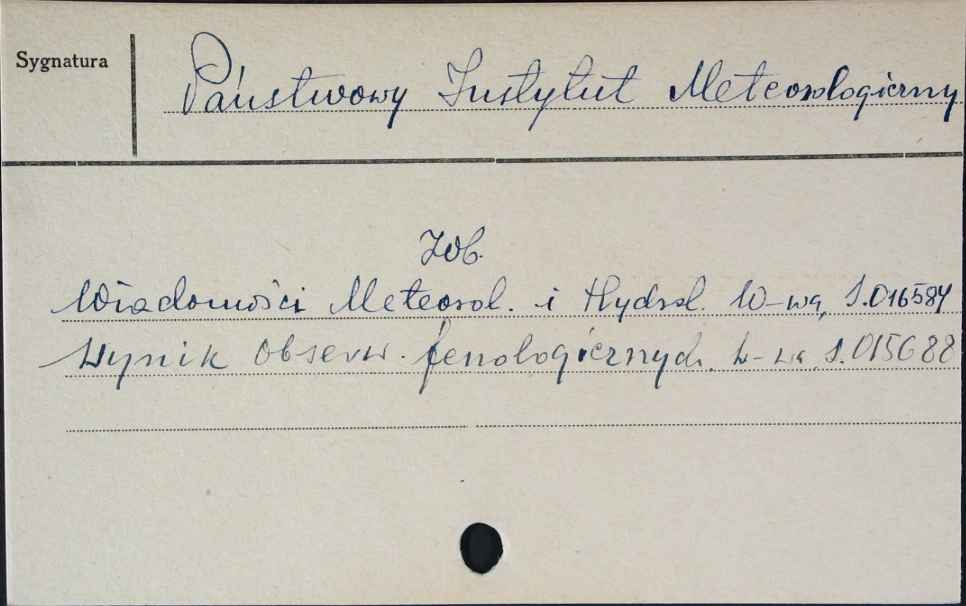 Sygnatura
Państwowy Instytut Meteorologiczny
Zob.
Wiadomości Meteorol. i Hydrol. W-wa, S.016584
Wynik obserw. fenologicznych, W-wa, S.015688